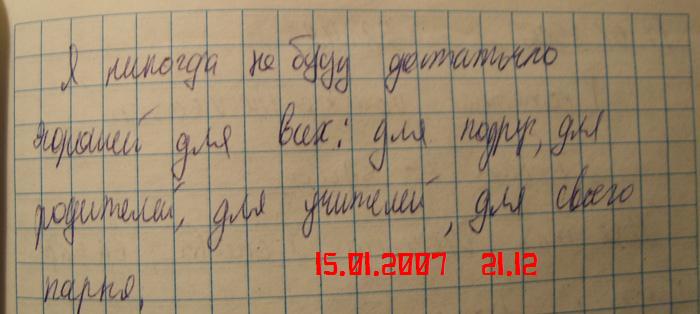 Я никогда не буду достаточно
хорошей для всех: для подруг, для
родителей, для учителей, для своего
парня.
15.01.2007 21.12